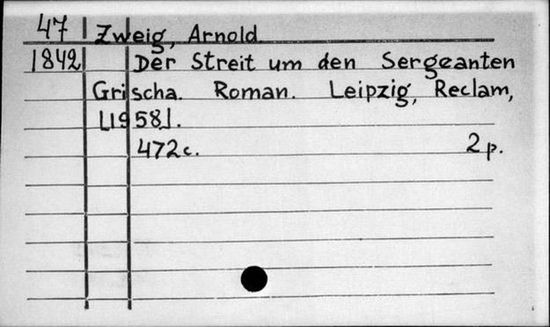 47 Zweig, Arnold
1842 Der Streit um den Sergeanten
Grischa. Roman. Leipzig, Reclam,
[1958].
472 c. 2 p.